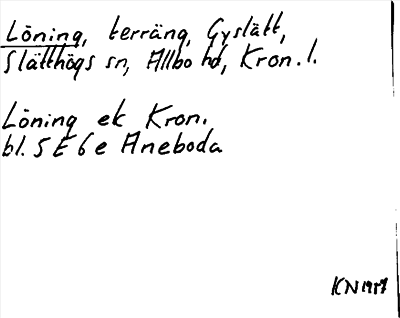 Löning, terräng, Gyslätt,
Slätthögs sn, Allbo hd, Kron. l.
Löning ek Kron.
bl. 5 E 6 e Aneboda